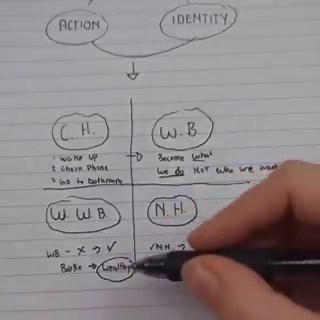 ACTION
IDENTITY
C.H.
1 Wake up
2 Check Phone
3 Go to bathroom
W.B
Become what
we do NOT who we want
W.W.B.
WB - X → ✓
Broke → Wealthy
N.H.
✓NH →